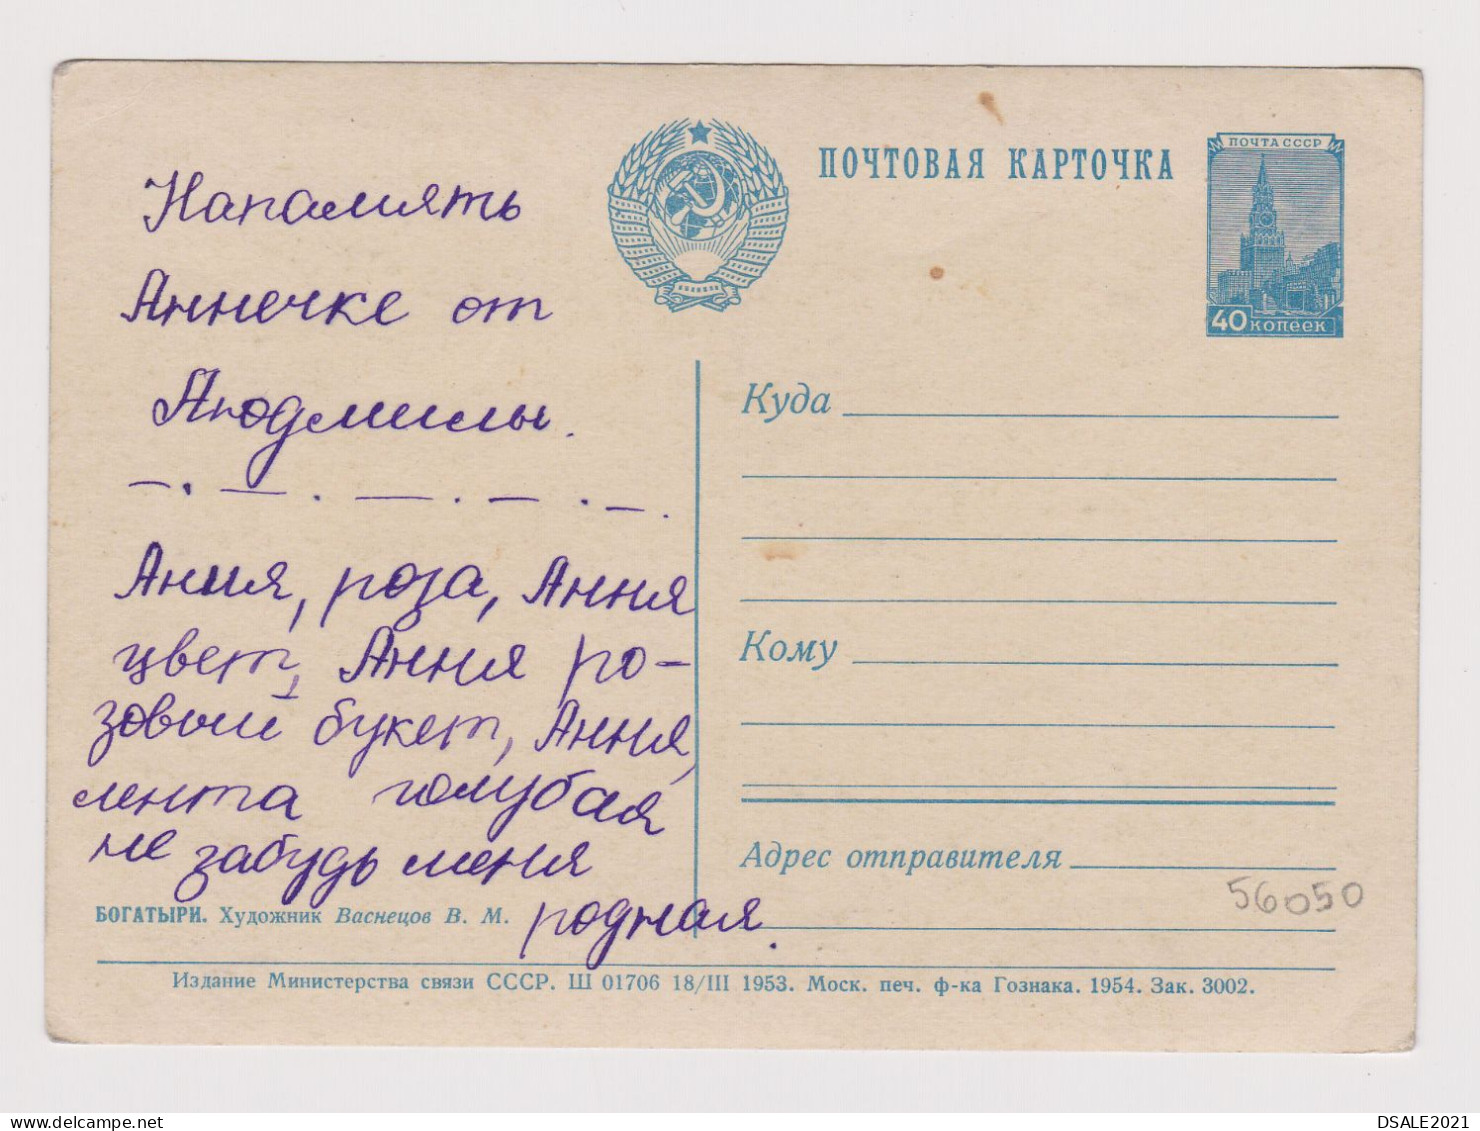 ПОЧТОВАЯ КАРТОЧКА
ПОЧТА СССР
40 КОПЕЕК
Напамять
Аннечке от
Людмилы.
Анния, роза, Анния
цвет, Анния ро-
зовый букет, Анния,
лента голубая
не забудь меня
родная.
Куда
Кому
Адрес отправителя
56050
БОГАТЫРИ. Художник Васнецов В. М.
Издание Министерства связи СССР. Ш 01706 18/III 1953. Моск. печ. ф-ка Гознака. 1954. Зак. 3002.
DSALE2021